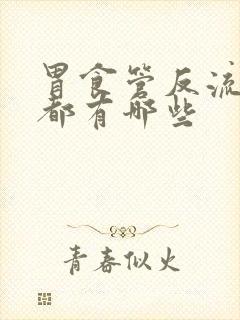 胃食管反流
都有哪些
青春似火